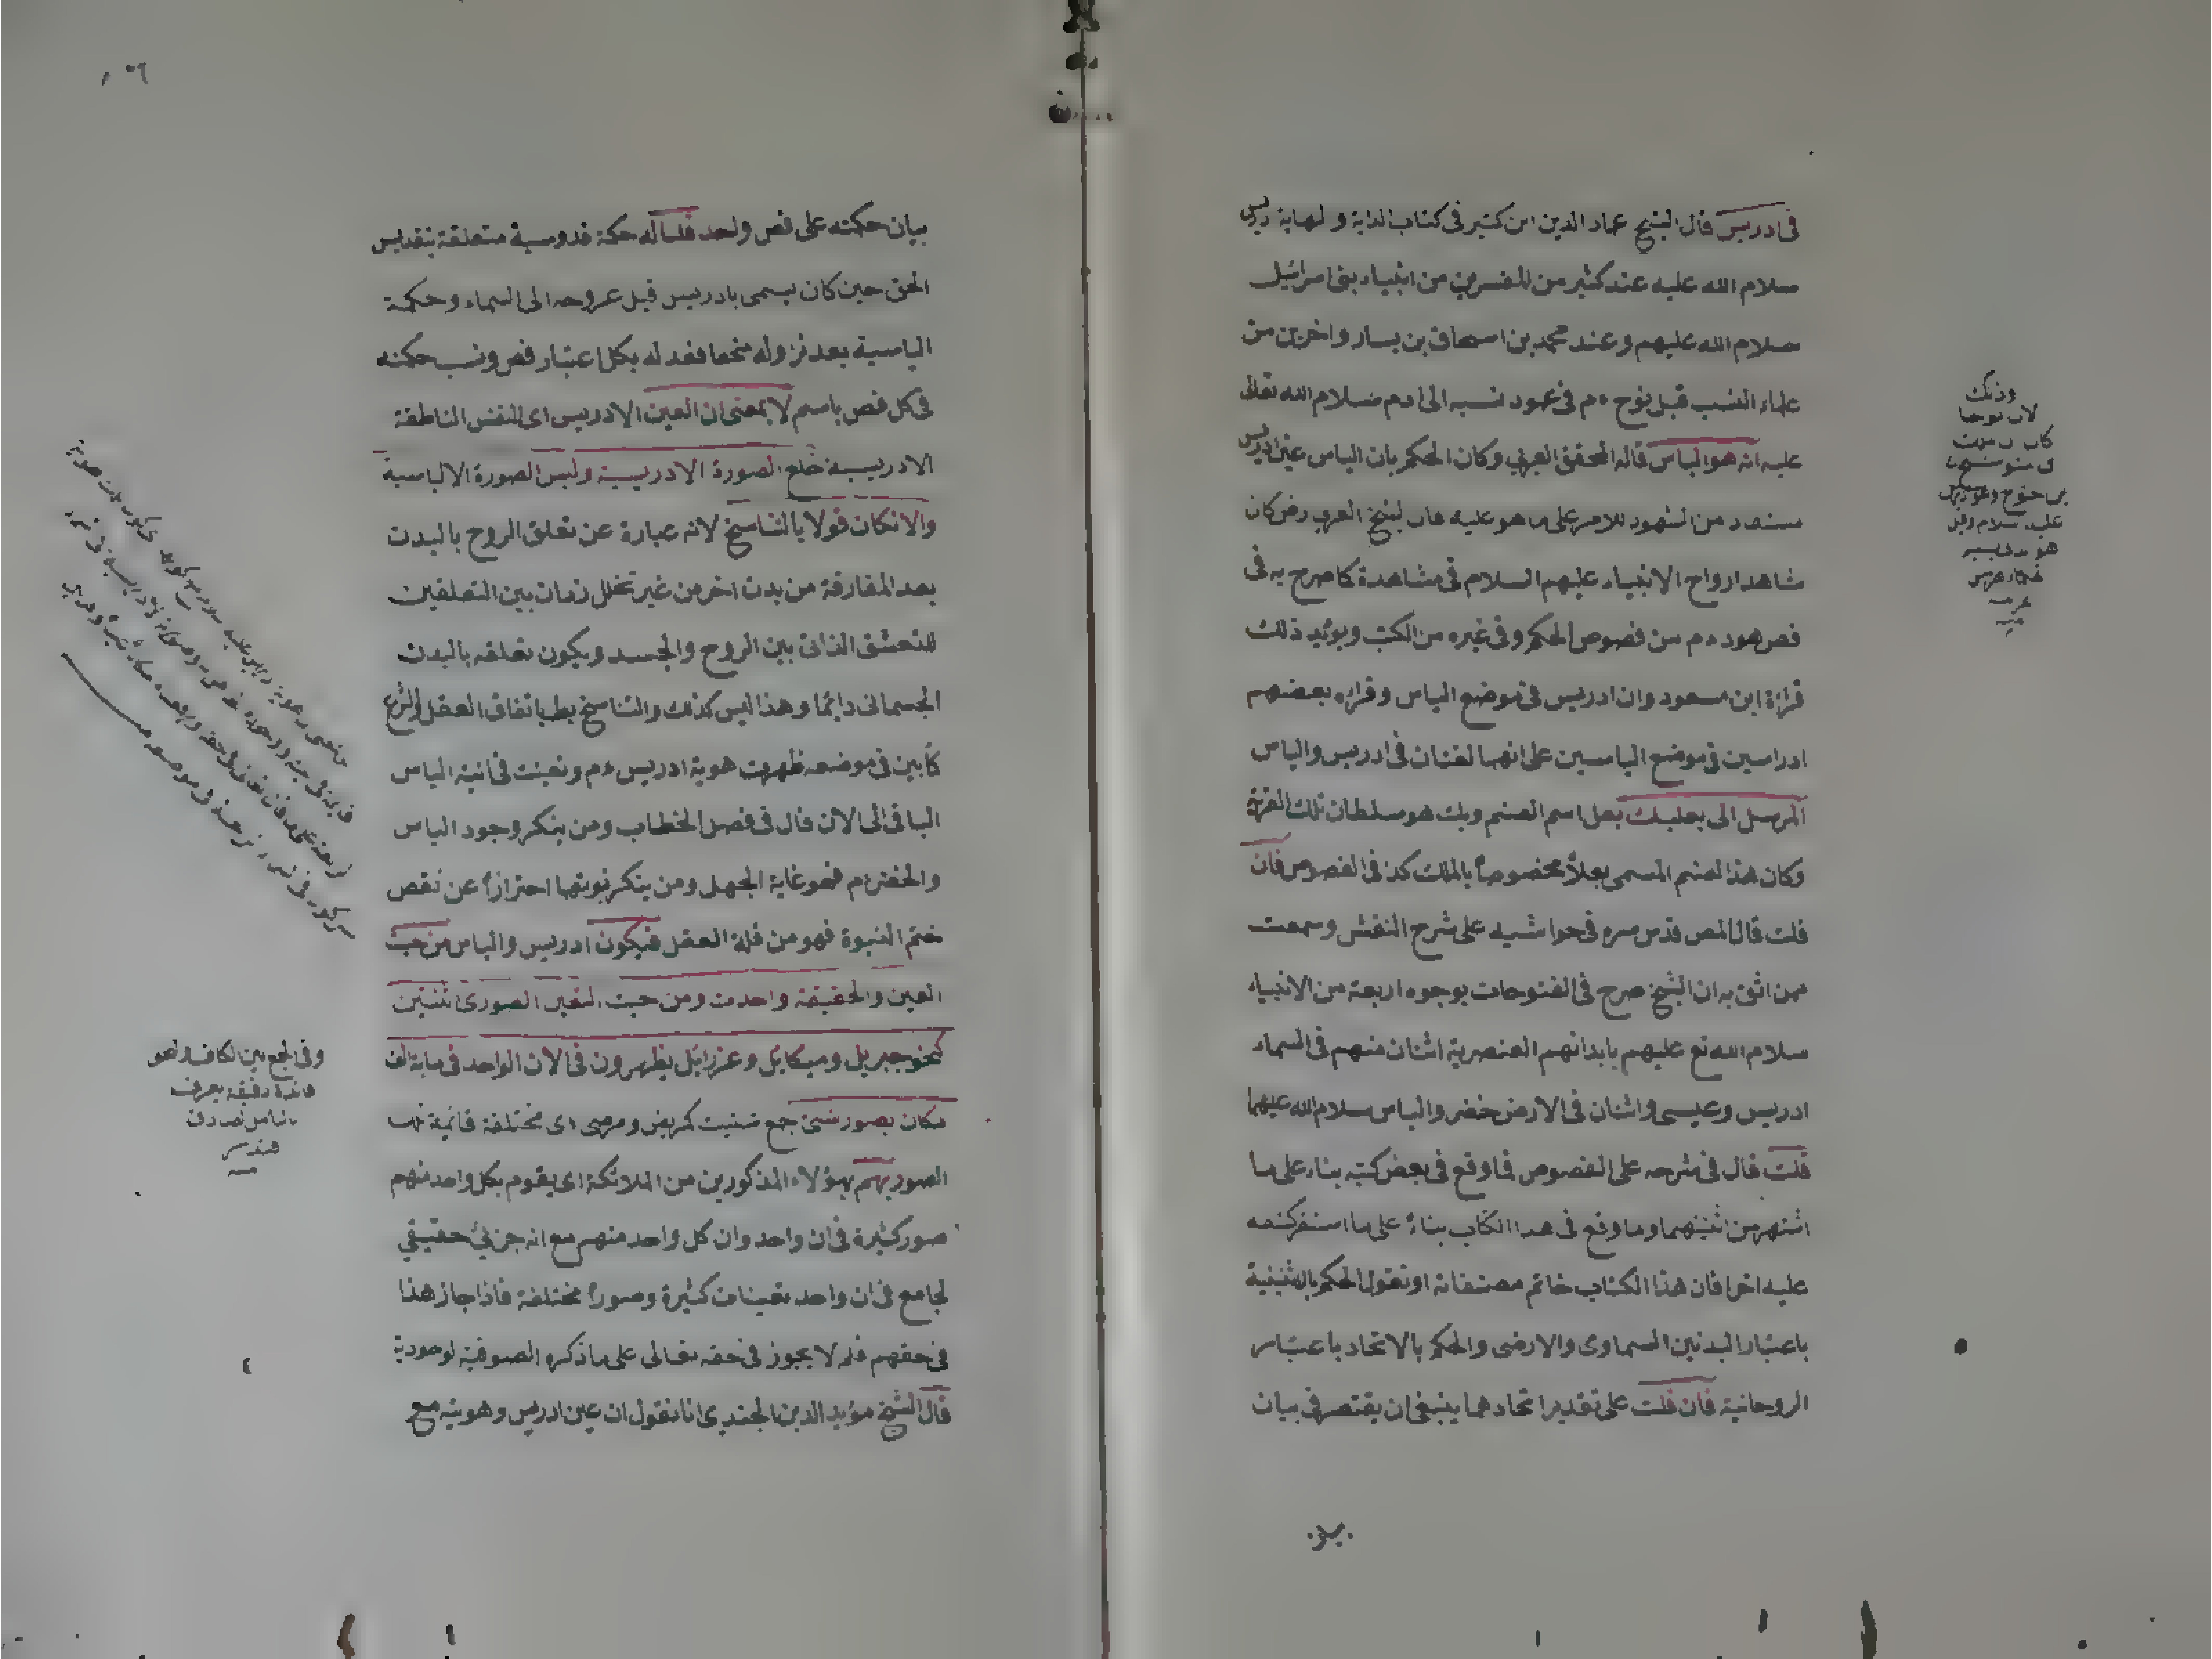 فى ادريس قال الشيخ عماد الدين ابن كثير فى كتاب البداية والنهاية ادريس
سلام الله عليه عند كثير من المفسرين من انبياء بنى اسرائيل
سلام الله عليهم وعند محمد بن اسحاق بن يسار واخرين من
علماء النسب قبل نوح ءم فى عمود نسبه الى ادم سلام الله تعالى
عليه انه هو الياس قاله المحقق العربى وكان الحكم بان الياس عين ادريس
مستفاد من الشهود للامر على ما هو عليه فان الشيخ العربى رض كان
شاهد ارواح الانبياء عليهم السلام فى مشاهدة كما صرح به فى
فص هود ءم من فصوص الحكم وفى غيره من الكتب ويؤيد ذلك
قراة ابن مسعود وان ادريس فى موضع الياس وقراه بعضهم
ادراسين فى موضع الياسين على انهما لغتان فى ادريس والياس
المرسل الى بعلبك بعل اسم الصنم وبك هو سلطان تلك القرية
وكان هذا الصنم المسمى بعلاً مخصوصاً بالملك كذا فى الفصوص فان
قلت قال المص قدس سره فى حواشيه على شرح النقش وسمعت
ممن اثق به ان الشيخ صرح فى الفتوحات بوجوه اربعة من الانبياء
سلام الله تع عليهم بابدانهم العنصرية اثنان منهم فى السماء
ادريس وعيسى واثنان فى الارض خضر والياس سلام الله عليهما
قلت قال فى شرحه على الفصوص فما وقع فى بعض كتبه بناء على ما
اشتهر من اثنينهما وما وقع فى هذا الكتاب بناءً على ما استقر كشفه
عليه اخرا فان هذا الكتاب خاتم مصنفاته او نقول الحكم بالاثنينية
باعتبار البدنين السماوى والارضى والحكم بالاتحاد باعتبار
الروحانية فان قلت على تقدير اتحادهما ينبغى ان يقتصر فى بيان
وذلك
لان نوحا
عليه سلام وقيل
بيان حكمته على فص واحد قلنا له حكمة قدوسية متعلقة بتقديس
الحق حين كان يسمى بادريس قبل عروجه الى السماء وحكمة
الياسية بعد نزوله منها فعقد له بكل اعتبار فص ونسب حكمته
فى كل فص باسم لا بمعنى ان العين الادريس اى النفس الناطقة
الادريسية خلع الصورة الادريسية ولبس الصورة الالياسية
والا لكان قولا بالتناسخ لانه عبارة عن تعلق الروح بالبدن
بعد المفارقة من بدن اخر من غير تخلل زمان بين التعلقين
للتعشق الذاتى بين الروح والجسد ويكون تعلقه بالبدن
الجسمانى دائما وهذا ليس كذلك والتناسخ بط باتفاق العقل والشرع
كما بين فى موضعه ظهرت هوية ادريس ءم وتعينت فى انية الياس
الباقى الى الان قال فى فصل الخطاب ومن ينكر وجود الياس
والخضر ءم فهو غاية الجهل ومن ينكر نبوتهما احترازاً عن نقص
ختم النبوة فهو من قلة العقل فيكون ادريس والياس من حيث
العين والحقيقة واحدت ومن حيث التعين الصورى اثنتين
كنحو جبريل وميكايل وعزرايل يظهرون فى الان الواحد فى ماية الف
مكان بصور شتى جمع شتيت كمريض ومرضى اى مختلفة قائمة تلك
الصور بهم بهؤلاء المذكورين من الملائكة اى يقوم بكل واحد منهم
صور كثيرة فى ان واحد وان كل واحد منهم مع انه جزئى حقيقي
لجامع فى ان واحد تعينات كثيرة وصوراً مختلفة فاذا جاز هذا
فى حقهم فلم لا يجوز فى حقه تعالى على ما ذكره الصوفية الوجودية
قال الشيخ مؤيد الدين الجندى انا نقول ان عين ادريس وهويته مع
وفى الجمع بين الكاف ونحو
فائدة دقيقة يعرف